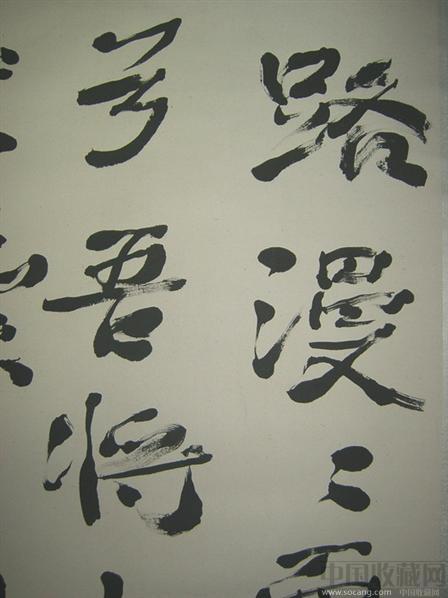 路漫〻
兮吾将
中国收藏网
www.socang.com 中国收藏网